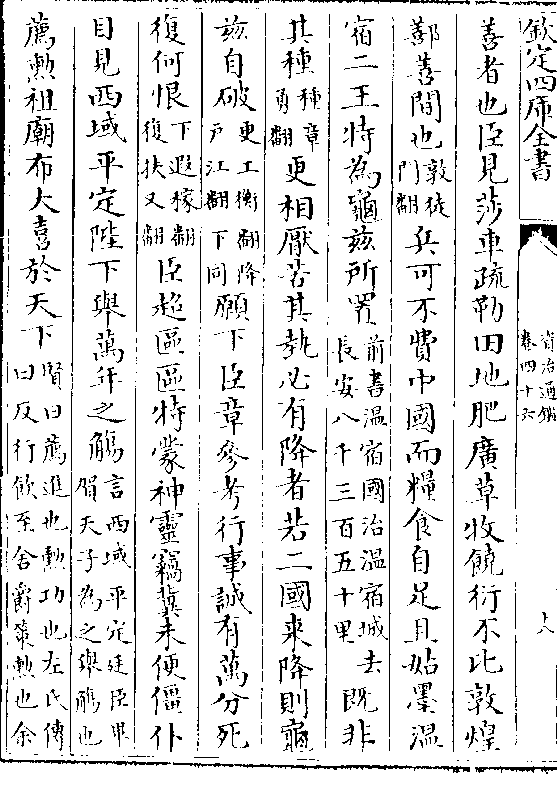 欽定四庫全書
資治通鑑
卷四十六
善者也臣見莎車疏勒田地肥廣草牧饒衍不比敦煌
鄯善間也敦徒門翻兵可不費中國而糧食自足且姑墨溫
宿二王特為龜兹所置前書溫宿國治溫宿城去長安八千三百五十里既非
其種種章勇翻更相厭苦其埶必有降者若二國來降則龜
兹自破更工衡翻降戶江翻下同願下臣章參考行事誠有萬分死
復何恨下遐稼翻復扶又翻臣超區區特蒙神靈竊冀未便僵仆
目見西域平定陛下舉萬年之觴言西域平定廷臣畢賀天子為之舉觴也
薦勲祖廟布大喜於天下賢曰薦進也勲功也左氏傳曰反行飲至舍爵策勲也余